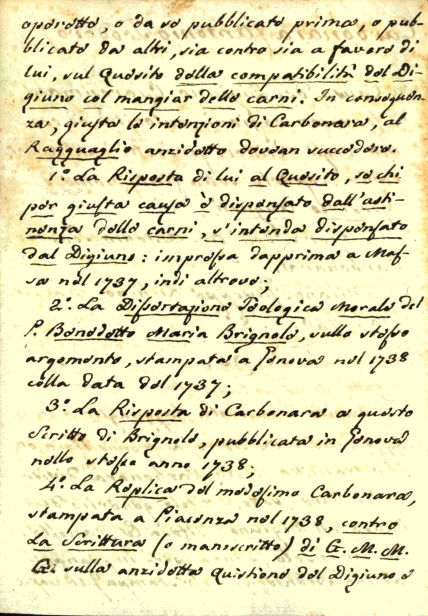 operette, o da se pubblicate prima, o pub-
blicate da altri, sia contro sia a favore di
lui, sul Quesito della compatibilità del Di-
giuno col mangiar delle carni. In conseguen-
za, giusta le intenzioni di Carbonara, al
Ragguaglio anzidetto dovean succedere.
1.º La Risposta di lui al Quesito, se chi
per giusta causa è dispensato dall'asti-
nenza delle carni, s'intenda dispensato
dal Digiuno: impressa dapprima a Mas-
sa nel 1737, indi altrove;
2.º La Dissertazione Teologica Morale del
P. Benedetto Maria Brignole, sullo stesso
argomento, stampata a Genova nel 1738
colla data del 1737;
3.º La Risposta di Carbonara a questo
Scritto di Brignole, pubblicata in Genova
nello stesso anno 1738;
4.º La Replica del medesimo Carbonara,
stampata a Piacenza nel 1738, contro
La Scrittura (o manscritto) di G. M. M.
G. sulla anzidetta Quistione del Digiuno e